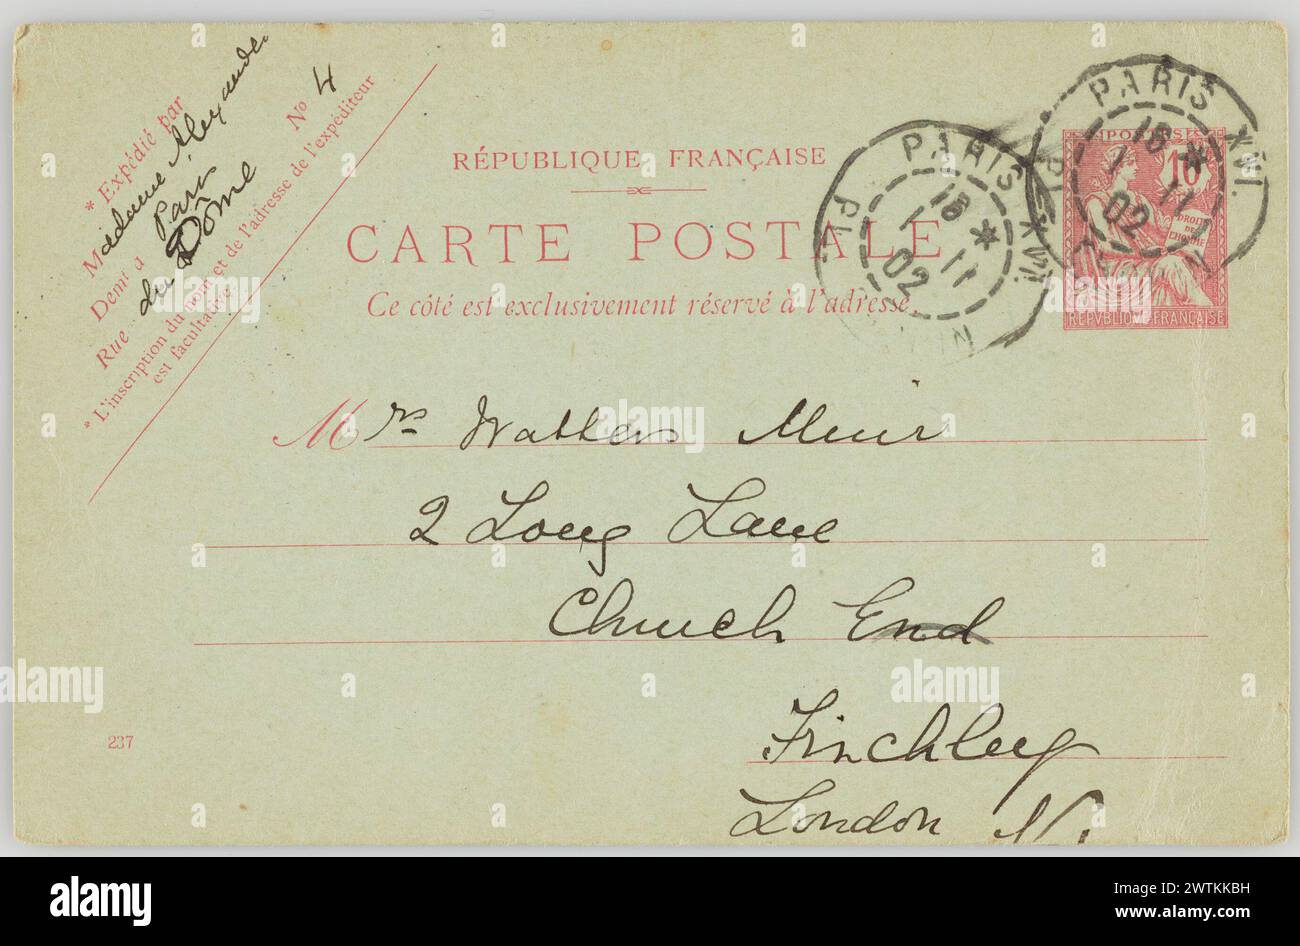 * Expédié par
Madame Alexander
Demt à Paris
Rue du Dôme
No 4
* L'inscription du nom et de l'adresse de l'expéditeur
est facultative
RÉPUBLIQUE FRANÇAISE
CARTE POSTALE
Ce côté est exclusivement réservé à l'adresse.
PARIS XVI
18 *
1 11
02
PARIS XVI.
18 *
1 11
02
POSTES
10
DROITS
DE
L'HOMME
REPVBLIQVE FRANÇAISE
Mrs Walter Muir
2 Long Lane
Church End
Finchley
London N.
237
alamy
Image ID: 2WTKKBH
www.alamy.com